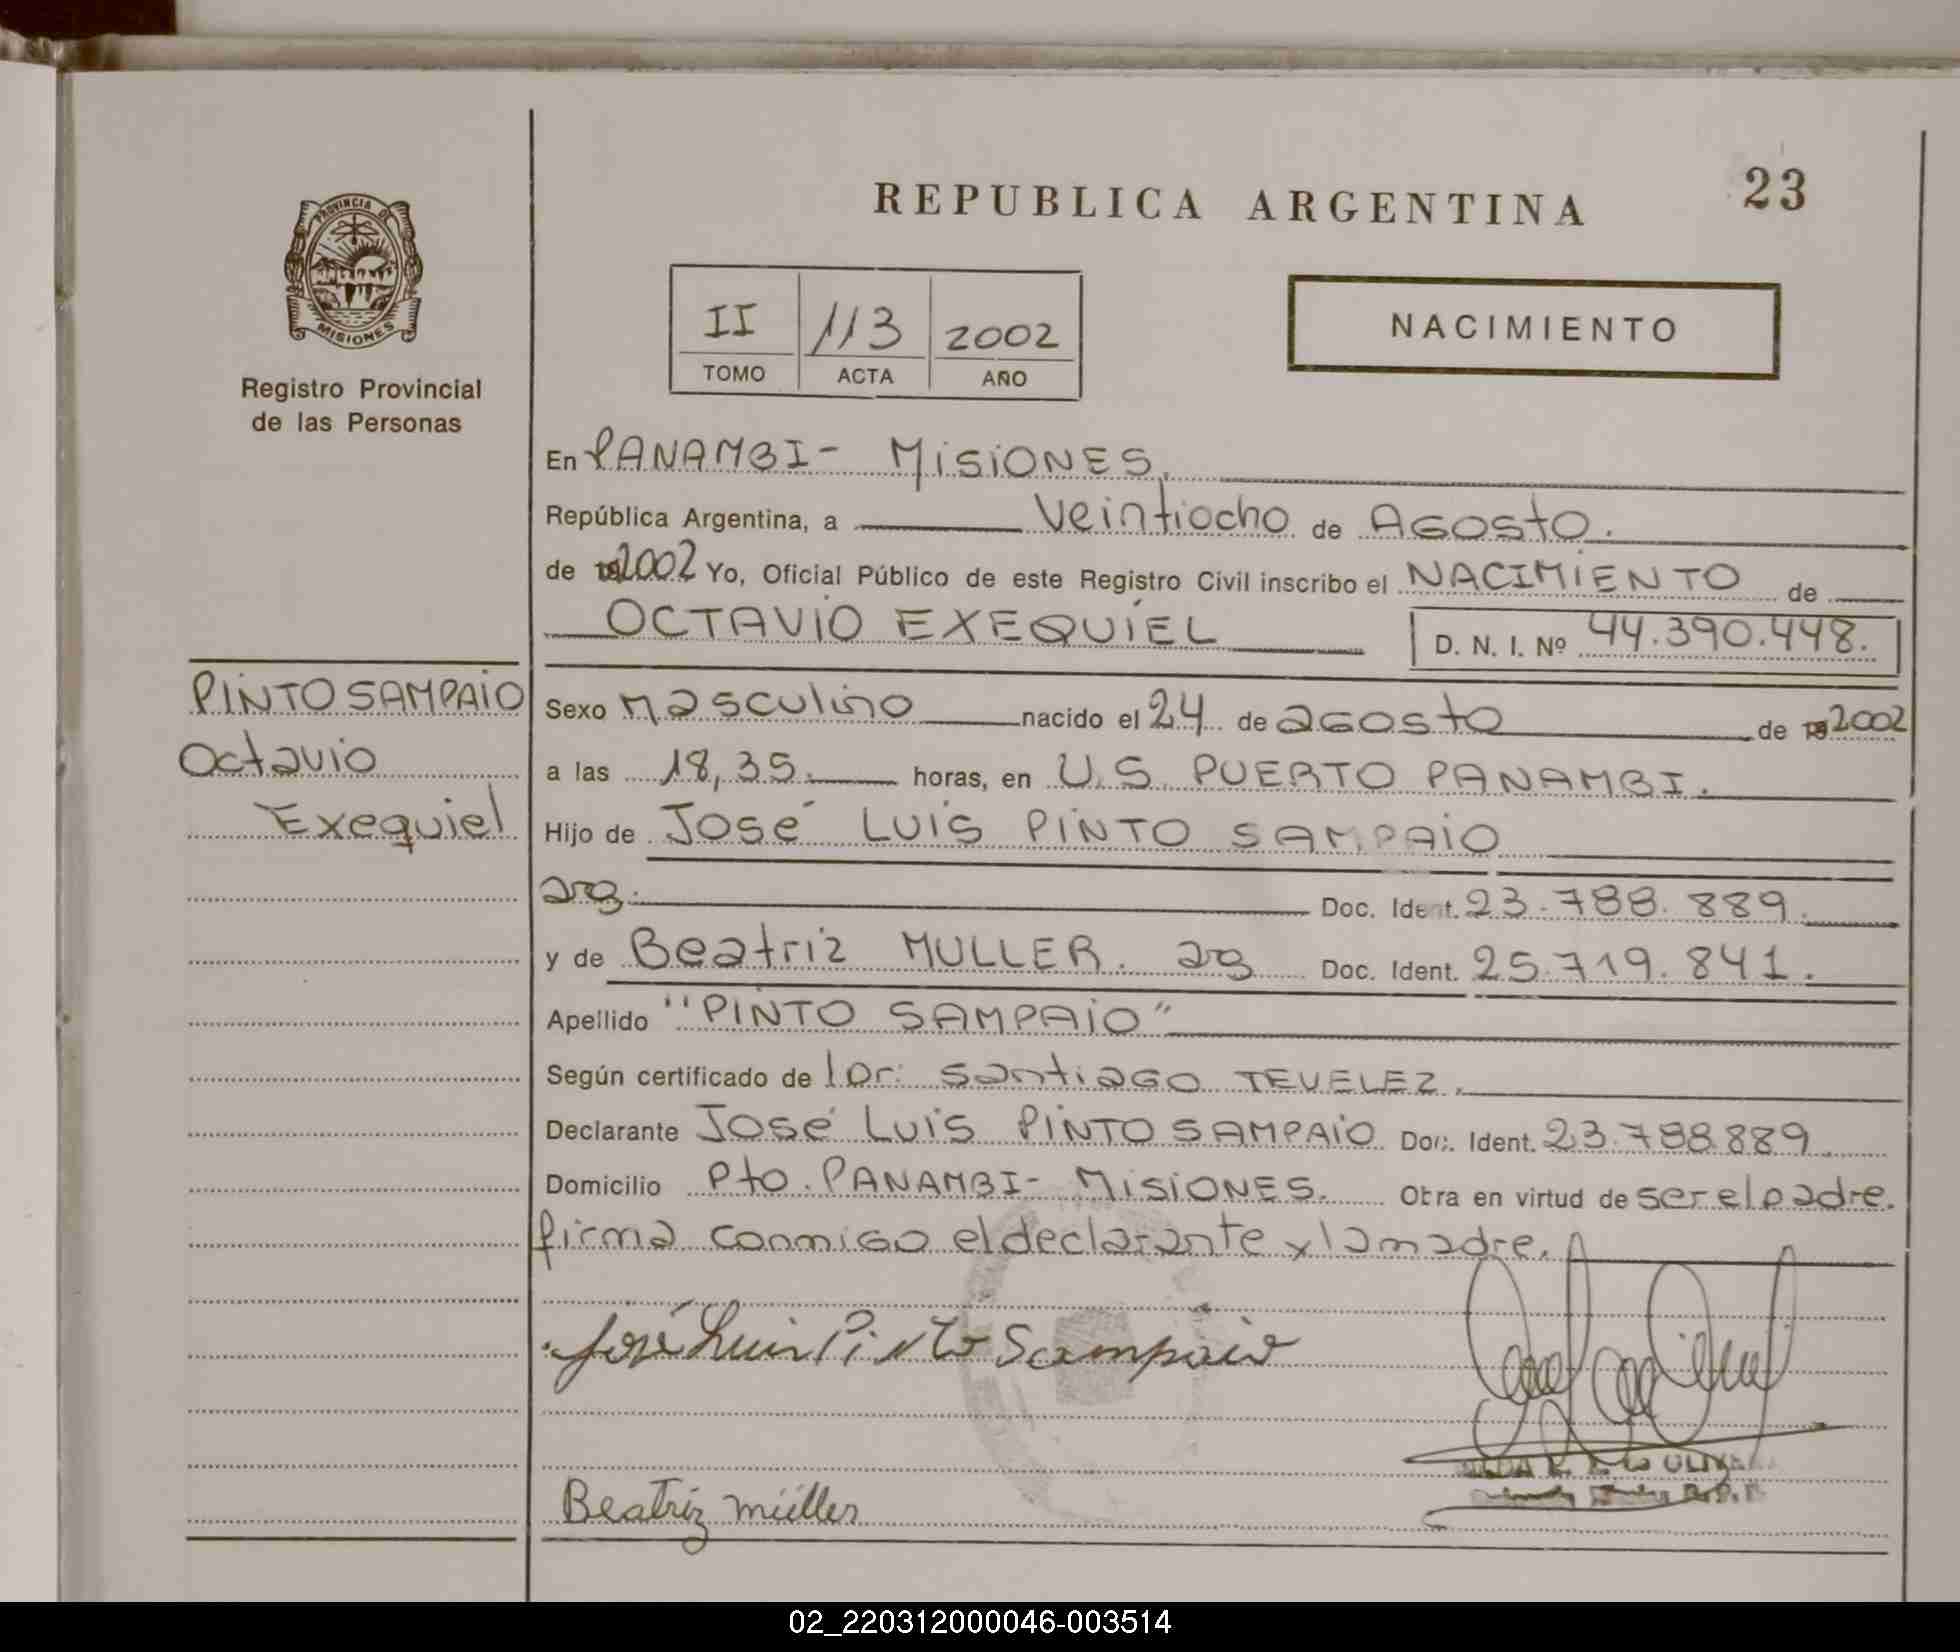 REPUBLICA ARGENTINA
23
PROVINCIA DE
MISIONES
Registro Provincial
de las Personas
II 113 2002
TOMO ACTA AÑO
NACIMIENTO
En PANAMBI - MISIONES.
República Argentina, a veintiocho de AGOSTO.
de 19 2002 Yo, Oficial Público de este Registro Civil inscribo el NACIMIENTO de
OCTAVIO EXEQUIEL D. N. I. Nº 44.390.448.
PINTO SAMPAIO
Octavio
Exequiel
Sexo masculino nacido el 24 de agosto de 19 2002
a las 18,35. horas, en U.S. PUERTO PANAMBI.
Hijo de José LUIS PINTO SAMPAIO
arg. Doc. Ident. 23.788.889.
y de Beatriz MULLER. arg Doc. Ident. 25.719.841.
Apellido "PINTO SAMPAIO"
Según certificado de Santiago TEVELEZ.
Declarante José Luis PINTO SAMPAIO Doc. Ident. 23.788889
Domicilio Pto. PANAMBI - MISIONES. Obra en virtud de ser el padre.
firma conmigo el declarante y la madre.
José Luis Pinto Sampaio
Beatriz müller
02_220312000046-003514